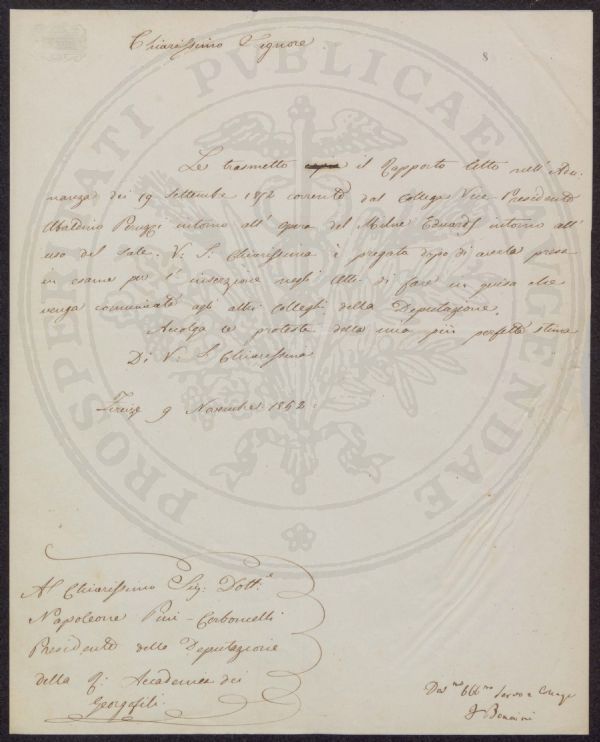 Chiarissimo Signore
8
Le trasmetto il Rapporto letto nell' Adu-
nanza dei 19 Settembre 1852 corrente dal Collega Vice-Presidente
Ubaldino Peruzzi intorno all' opera del Milne Edwards intorno all'
uso del Sale. V. S. Chiarissima è pregata dopo di averla presa
in esame per l' inserzione negli Atti di fare in guisa che
venga comunicato agli altri Colleghi della Deputazione.
Accolga le proteste della mia più perfetta stima
Di V. S. Chiarissima
Firenze 9 Novembre 1852.
Al Chiarissimo Sig: Dott:e
Napoleone Pini-
Presidente della Deputazione
della R. Accademia dei
Georgofili.
Dev.mo Obb.mo Servo e Collega
PROSPERITATI PVBLICAE AVGENDAE